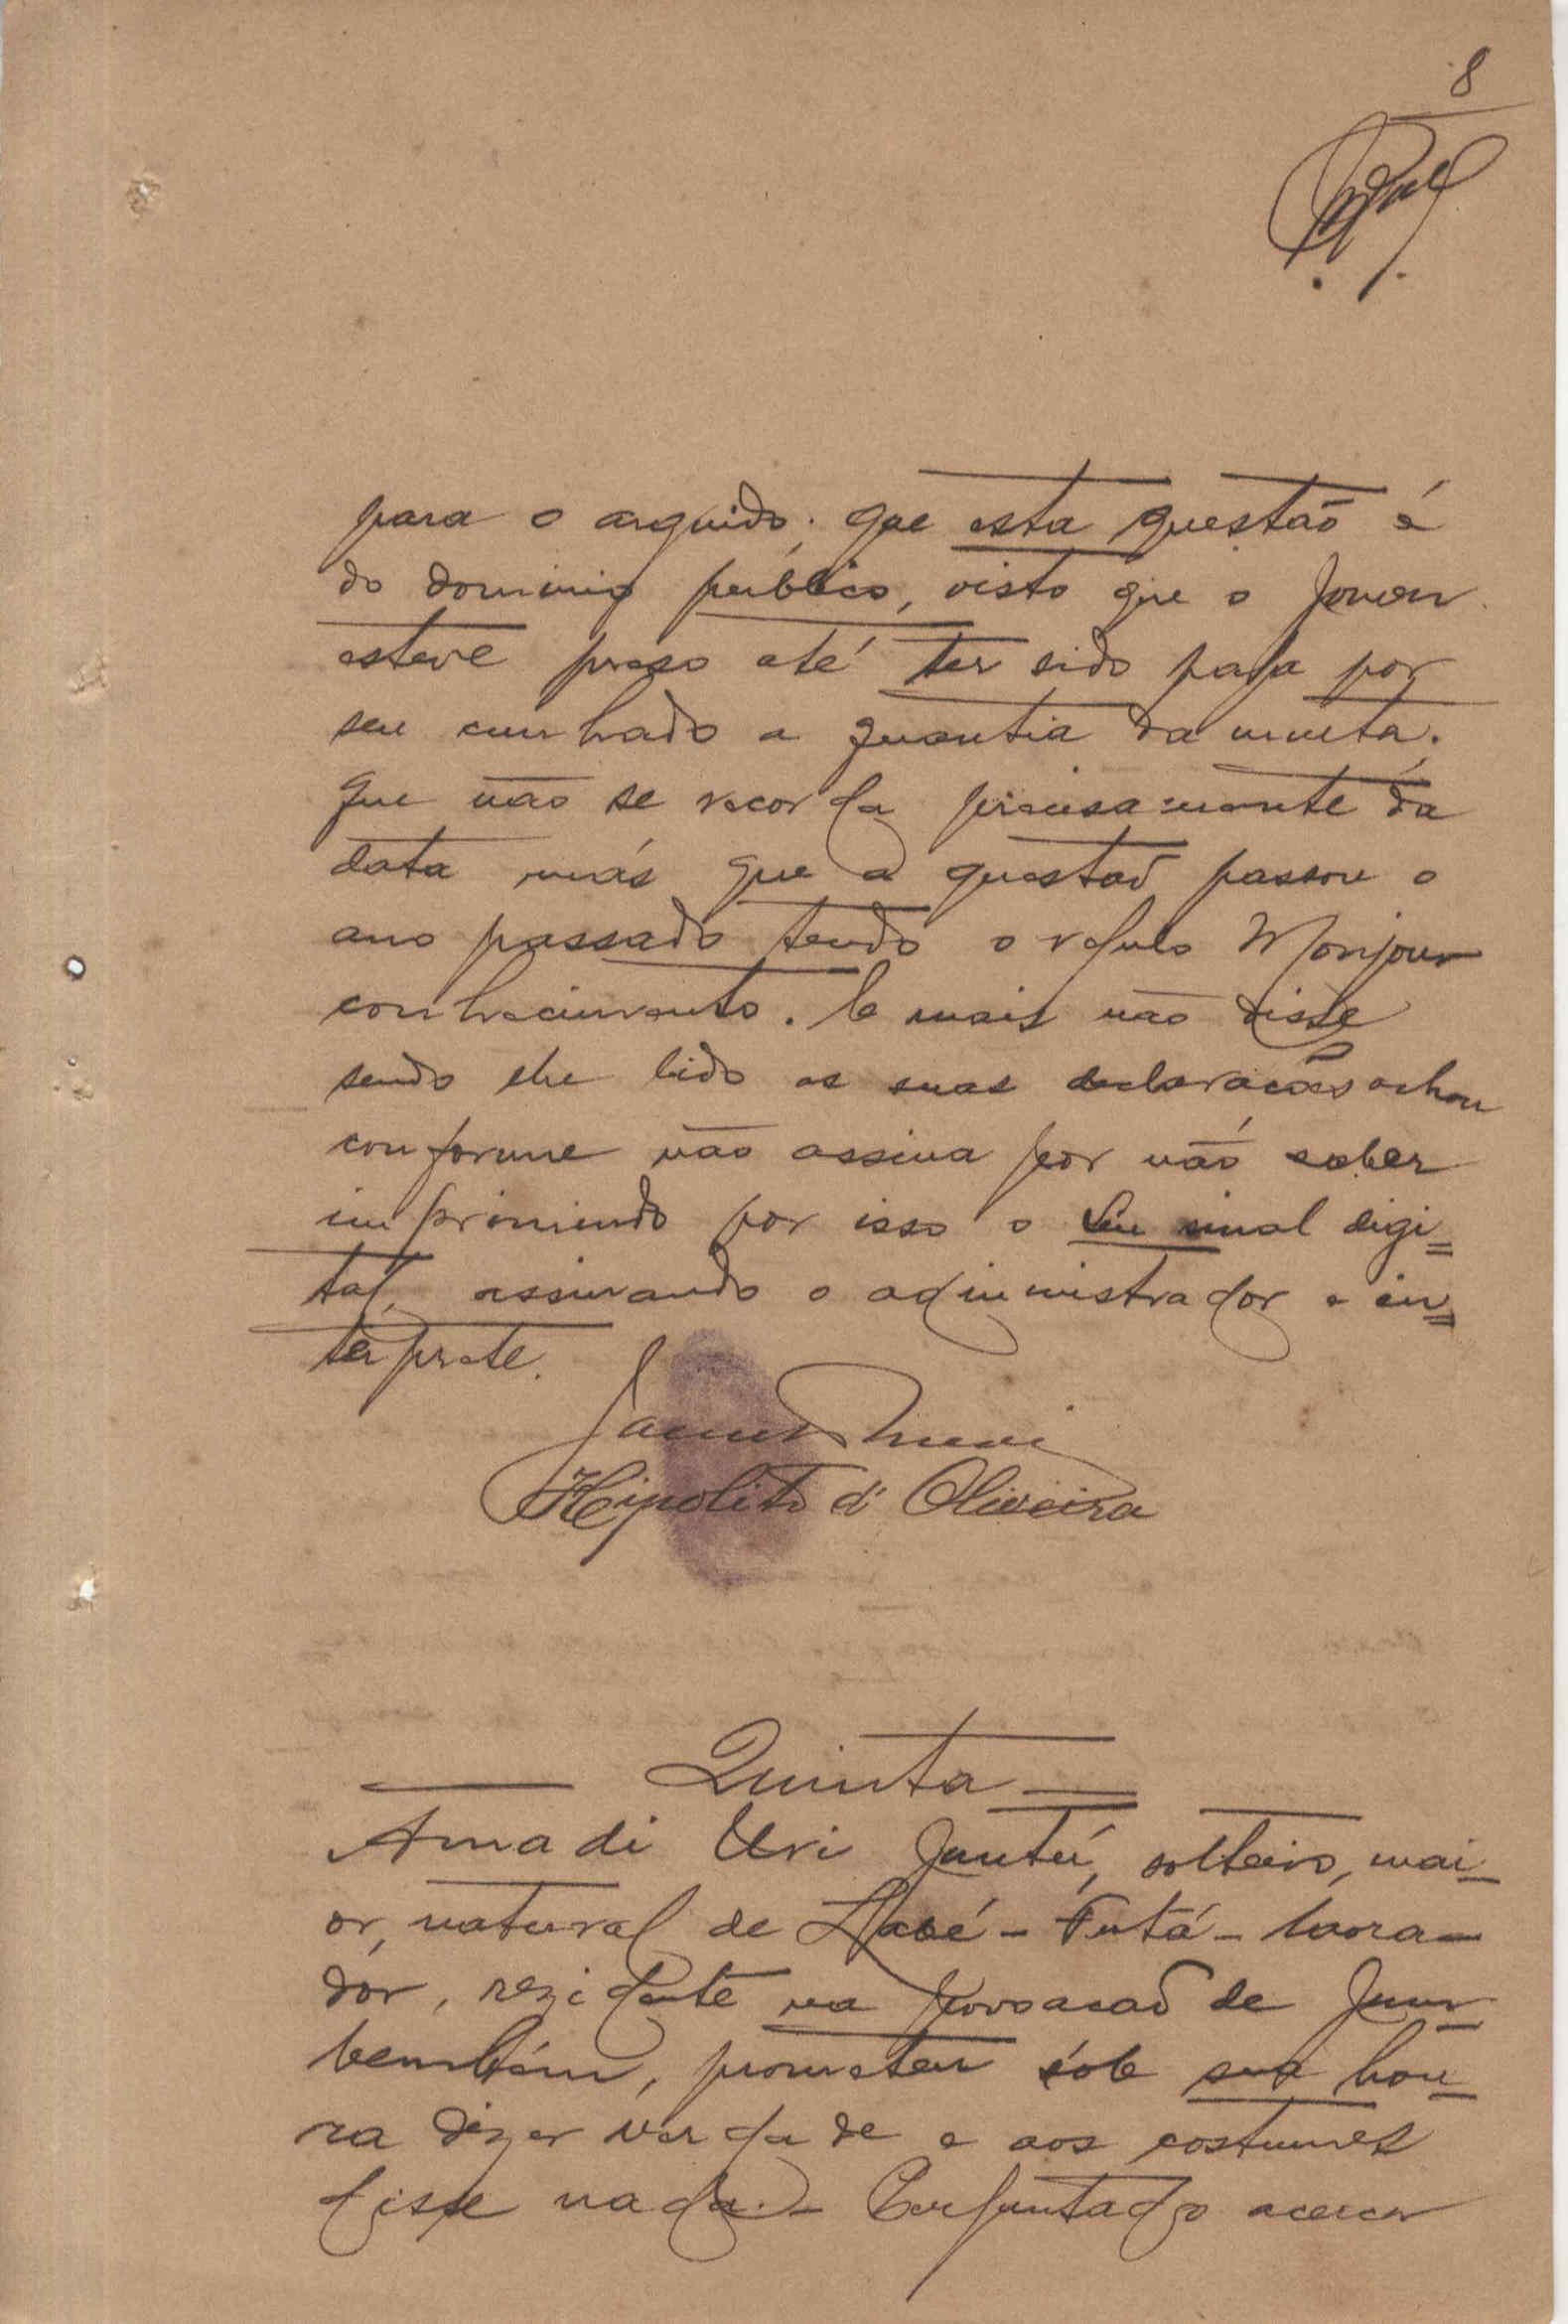 8
para o arguido; que esta questão é
do dominio publico, visto que o Joven
esteve preso até ter sido paga por
seu cunhado a quantia da multa.
Que não se recorda precisamente da
data más que a questão passou o
ano passado tendo o regulo Monjour
conhecimento. E mais não disse
sendo lhe lido as suas declarações achou
conforme não assina por não saber
imprimindo por isso o seu sinal digi=
tal, assinando o administrador e in=
terprete.
Hipolito d'Oliveira
Quinta
Amadi Uri Jantú, solteiro, mai-
or, natural de Labé - Futá - lavra-
dor, rezidente na povoacao de Jum-
bembém, prometeu sób sua hon-
ra dizer verdade e aos costumes
disse nada. - Perguntado acerca